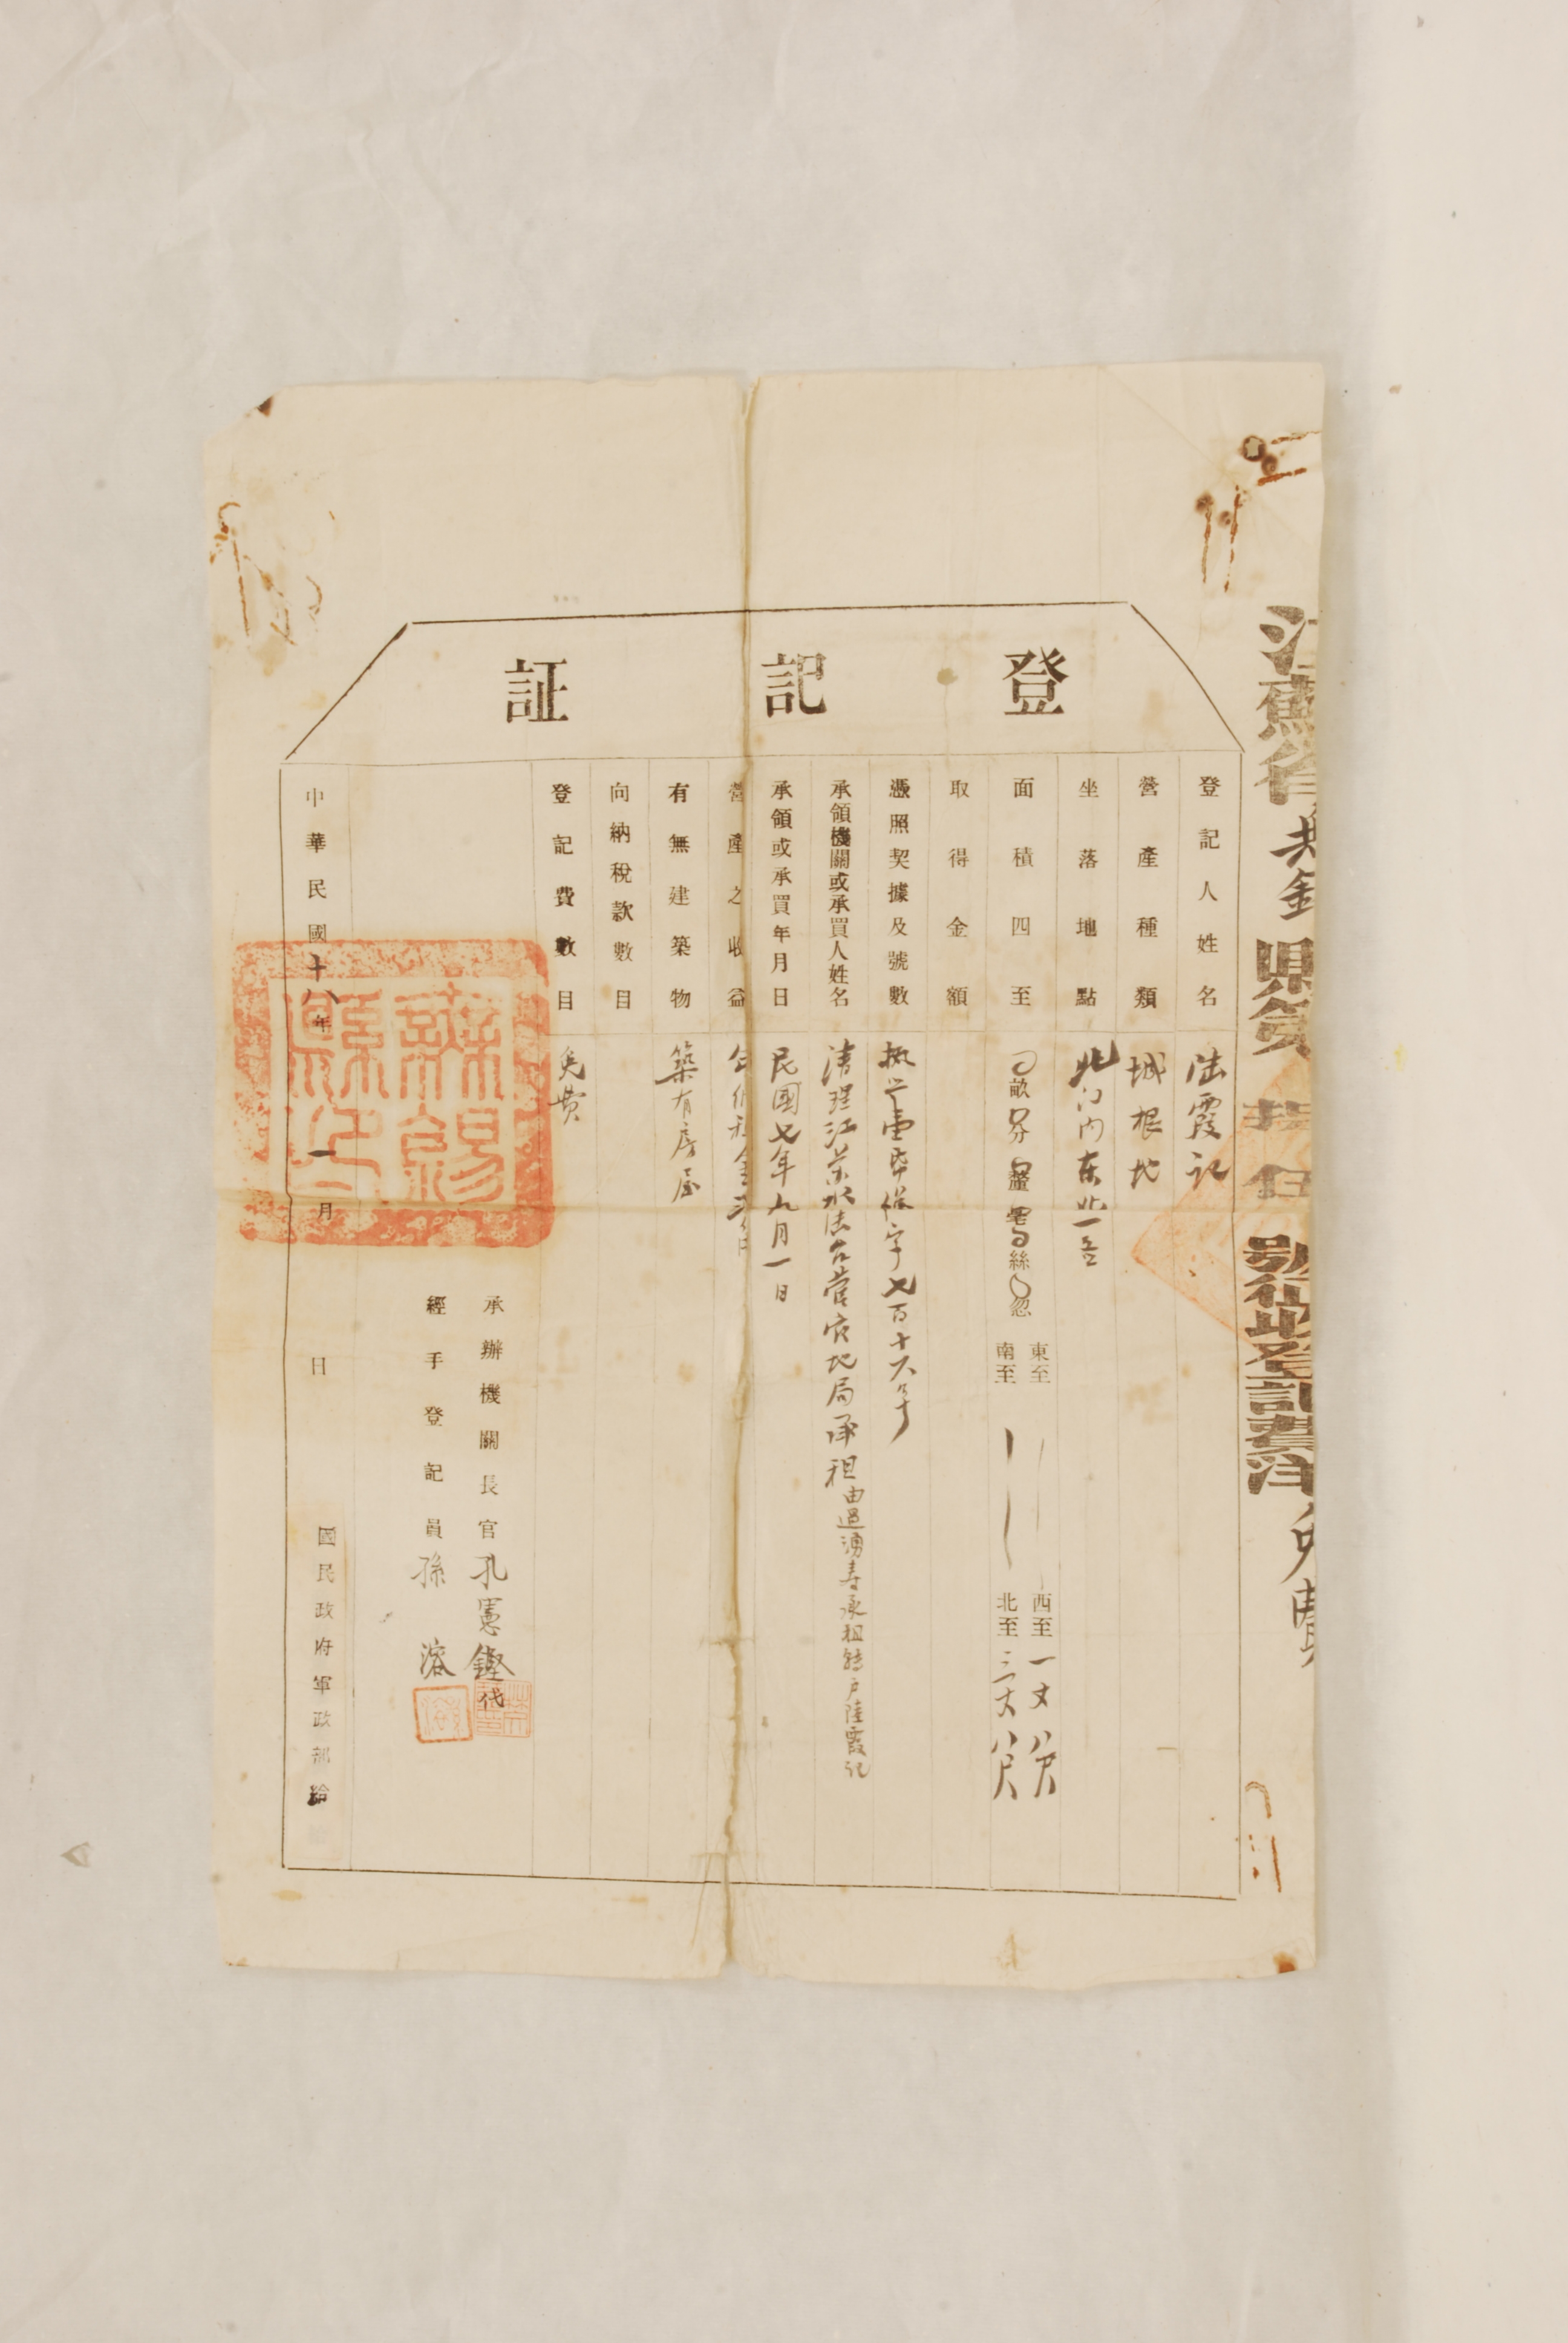 江蘇省無錫縣第
登記証
登記人姓名 陆霞記
營產種類 城根地
坐落地點 北门内东
面積四至 〇畝 分 釐 毫 絲〇忽 東至 南至 西至一丈八尺 北至三丈八尺
取得金額
憑照契據及號數 执业 字七百十六号
承領機關或承買人姓名 清理江 官地局承租由過湧寿承租轉户陸霞記
承領或承買年月日 民國七年九月一日
營產之收益
有無建築物 築有房屋
向納稅款數目
登記費數目 免费
承辦機關長官 孔憲鏗代
經手登記員 孫溶
中華民國十八年一月 日
國民政府軍政部給
無錫縣印